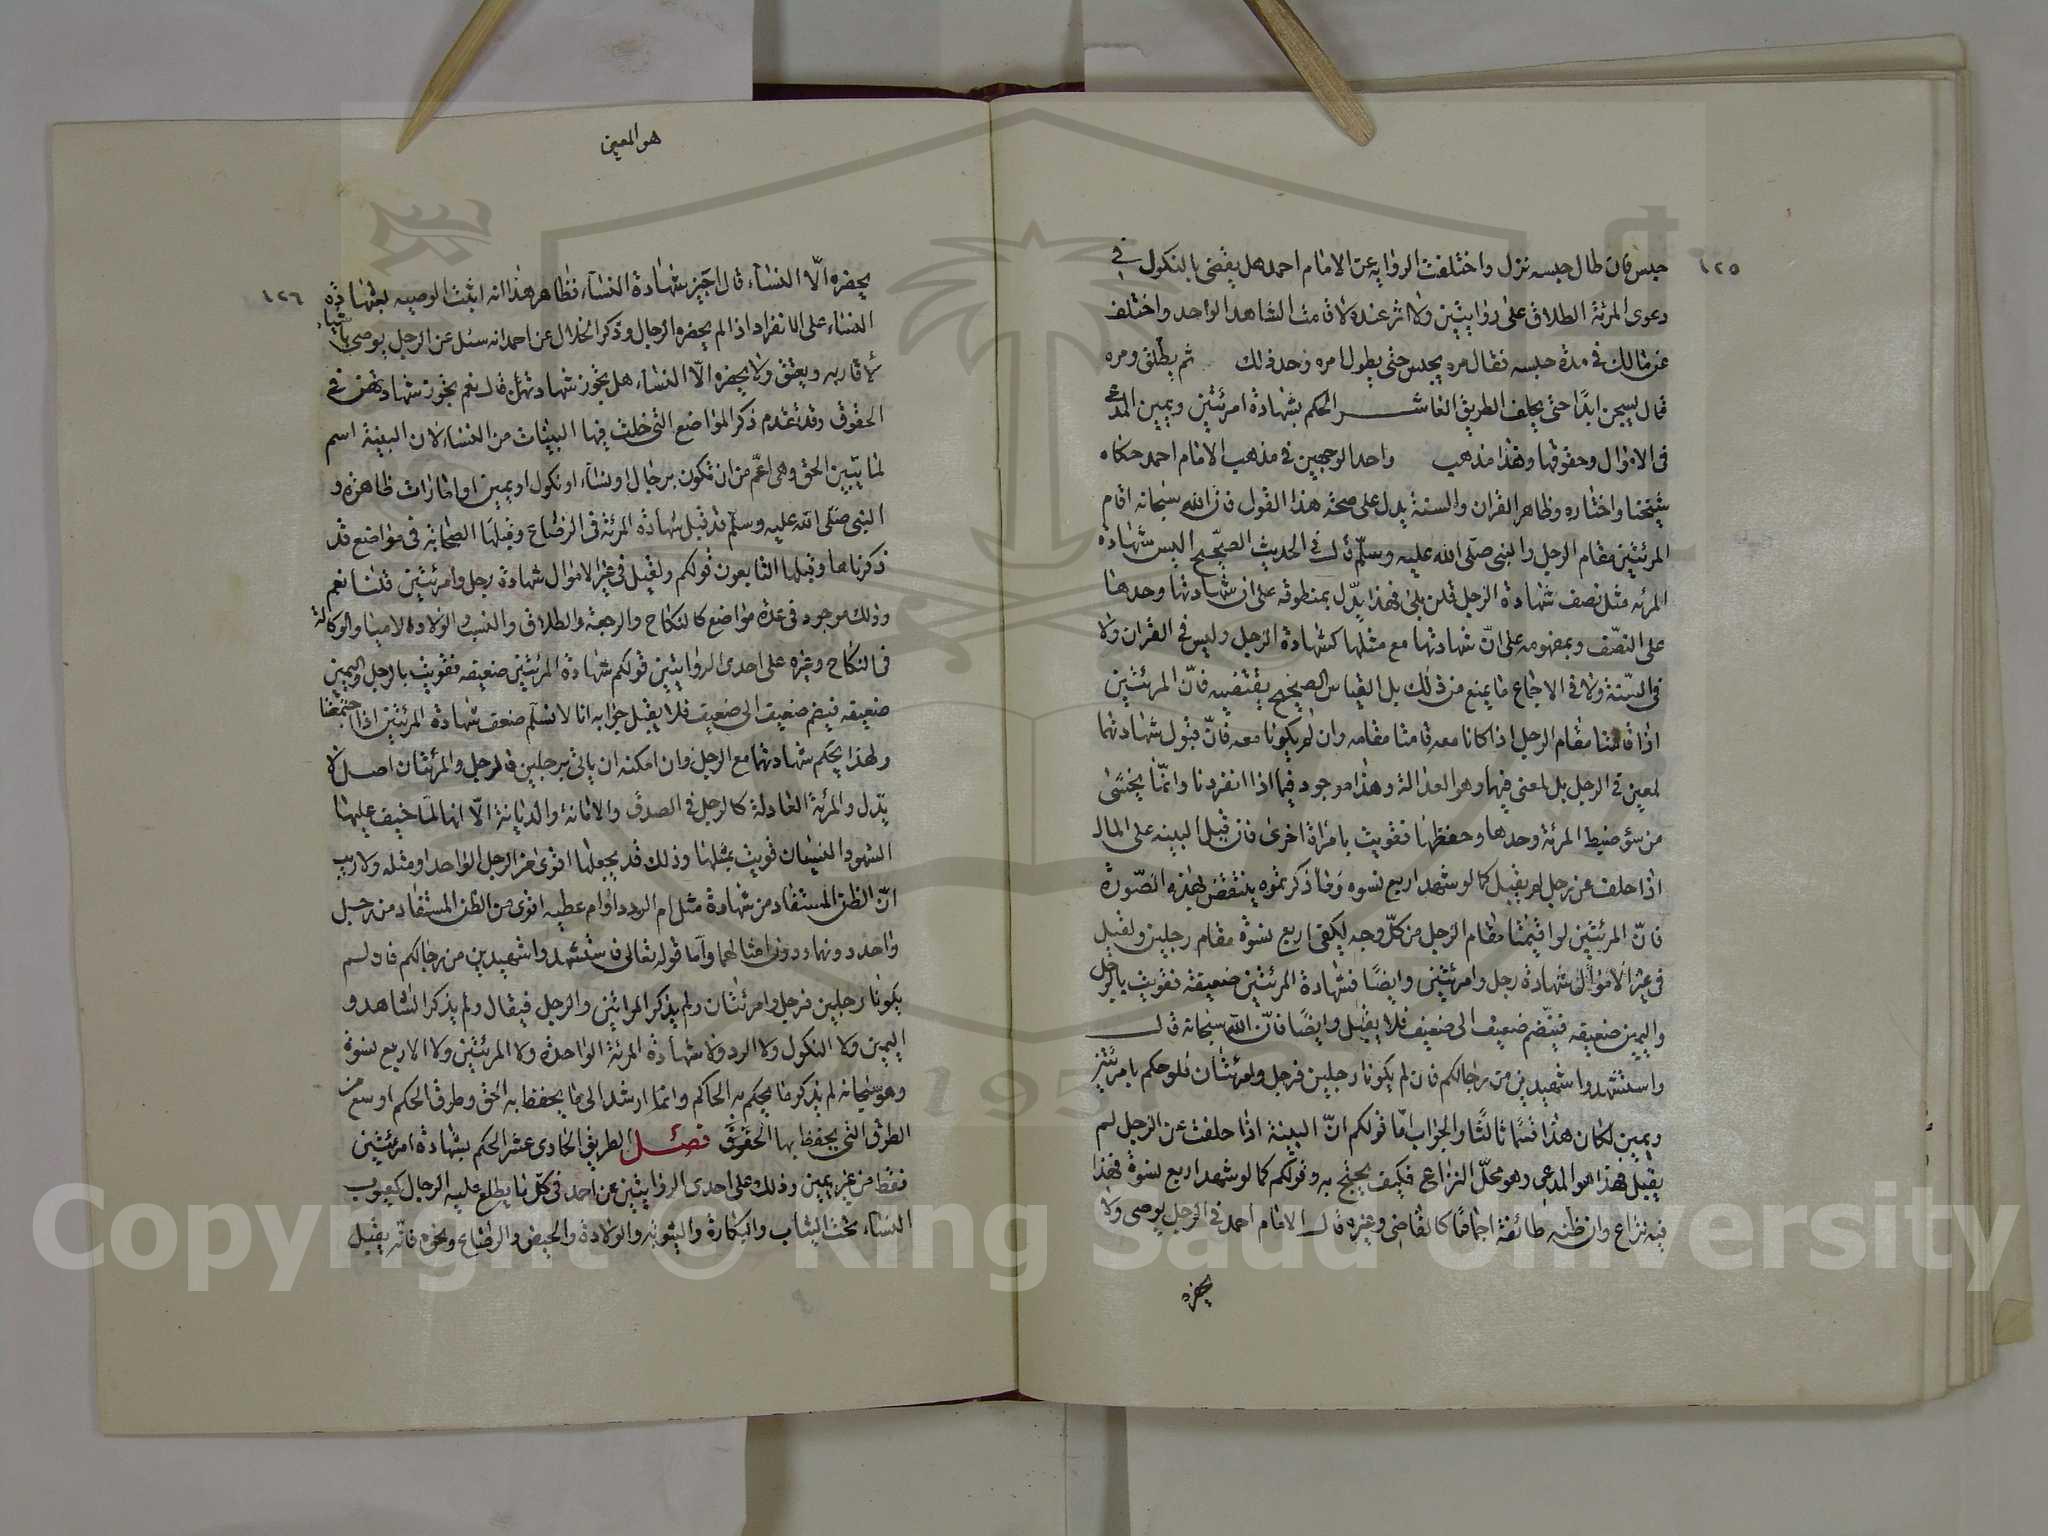 ١٢٥
حبس فان طال حبسه نزل واختلفت الروايه عن الامام احمد هل يقضى بالنكول فى
دعوى المرئة الطلاق على روايتين ولا اثر عنده لاقامت الشاهد الواحد واختلف
عن مالك فى مدة حبسه فقال مره يحبس حتى يطول امره وحد ذلك ثم يطلق ومره
قال يسجن ابدًا حتى يحلف الطريق العاشر الحكم بشهادة امرئتين ويمين المدعى
فى الاموال وحقوقها وهذا مذهب واحد الوجهين فى مذهب الامام احمد حكاه
شيخنا واختاره وظاهر القران والسنة يدل على صحة هذا القول فان الله سبحانه اقام
المرئتين مقام الرجل والنبى صلى الله عليه وسلّم قال فى الحديث الصّحيح اليس شهادة
المرئه مثل نصف شهادة الرجل قلن بلى فهذا يدّل بمنطوقه على ان شهادتها وحدها
على النصّف وبمفهومه على انّ شهادتها مع مثلها كشهادة الرجل وليس فى القران ولا
فى السّنة ولا فى الاجماع ما يمنع من ذلك بل القياس الصحيح يقتضيه فانّ المرئتين
اذا قامتا مقام الرجل اذا كانا معه قامتا مقامه وان لم يكونا معه فانّ قبول شهادتهما
لمعين فى الرجل بل لمعنى فيهما وهو العدالة وهذا موجود فيما اذا انفردتا وانمّا يخشى
من سؤ ضبط المرئة وحدها وحفظها فقويت بامراة اخرى فان قيل البينه على المال
اذا حلف عن رجل لم يقبل كما لو شهد اربع نسوه وما ذكرتموه ينتقض بهذه الصّورة
فانّ المرئتين لو اقيمتا مقام الرجل من كلّ وجه ليكفى اربع نسوة مقام رجلين ولقبل
فى غير الاموال شهادة رجل وامرئتين وايضًا فشهادة المرئتين ضعيفة فقويت بالرجل
واليمين ضعيفه فيتضم ضعيف الى ضعيف فلا يقبل وايضًا فانّ الله سبحانه قال
واستشهدوا شهيدين من رجالكم فان لم يكونا رجلين فرجل وامرئتان فلو حكم بامرئتين
ويمين لكان هذا قسمًا ثالثًا والجواب امّا قولكم انّ البينة اذا حلفت عن الرجل لم
يقبل فهذا هو المدعى وهو محلّ النزاع فكيف يحتج به وقولكم كما لو شهد اربع نسوة فهذا
فيه نزاع وان ظنه طائفة اجماعًا كالقاضى وغيره قال الامام احمد فى الرجل يوصى ولا
يحضره
هو المعين
١٢٦
يحضره الّا النسآء قال اجيز شهادة النسآء فظاهر هذا انه اثبت الوصيه بشهادة
النساء على الانفراد اذا لم يحضره الرجال وذكر الخلال عن احمد انه سئل عن الرجل يوصى باشياء
لأقاربه ويعتق ولا يحضره الّا النسآء هل يجوز شهادتهنّ قال نعم يجوز شهادتهن فى
الحقوق وقد تقدم ذكر المواضع التى خلت فيها البينات من النساء لان البينة اسم
لما يتبين الحق وهى اعمّ من ان تكون برجال او نساء او نكول او يمين او امارات ظاهره و
النبى صلّى الله عليه وسلّم قد قبل شهادة المرئة فى الرضاع وقبلها الصحابة فى مواضع قد
ذكرناها وقبلها التابعون قولكم ولقبل فى غير الاموال شهادة رجل وامرئتين قلنا نعم
وذلك موجود فى عدة مواضع كالنكاح والرجعة والطلاق والنسب والولادة الاميا والوكالة
فى النكاح وغيره على احدى الروايتين قولكم شهادة المرئتين ضعيفه فقويت بالرجل واليمين
ضعيفه فيضم ضعيف الى ضعيف فلا يقبل جوابه انا لا نسلّم ضعف شهادة المرئتين اذا اجتمعتا
ولهذا يحكم شهادتهما مع الرجل وان امكنه ان ياتى برجلين فالرجل والمرئتان اصل لا
يدّل والمرئة العادلة كالرجل فى الصدق والامانة والديانة الّا انها لمّا خيف عليها
السّهو والنسيان قويت بمثلها وذلك قد يجعلها اقوى من الرجل الواحد او مثله ولا ريب
انّ الظن المستفاد من شهادة مثل ام الدرداء وام عطيه اقوى من الظن المستفاد من رجل
واحد دونهما ودون امثالهما وامّا قوله تعالى فاستشهدوا شهيدين من رجالكم فان لم
يكونا رجلين فرجل وامرئتان ولم يذكر المراتين والرجل فيقال ولم يذكر الشاهد و
اليمين ولا النكول ولا الرد ولا شهادة المرئة الواحدة ولا المرئتين ولا الاربع نسوة
وهو سبحانه لم يذكر ما يحكم به الحاكم وانما ارشد الى ما يحفظ به الحق وطرق الحكم اوسع من
الطرق التى يحفظ بها الحقوق فصل الطريق الحادى عشر الحكم بشهادة امرئتين
فقط من غير يمين وذلك على احدى الروايتين عن احمد فى كلّ ما يطلع عليه الرجال كعيوب
النسآء تحت الثياب والبكارة والثيوبه والولادة والحيض والرضاع ونحوه فانّه يقبل
Copyright © King Saud University
1957